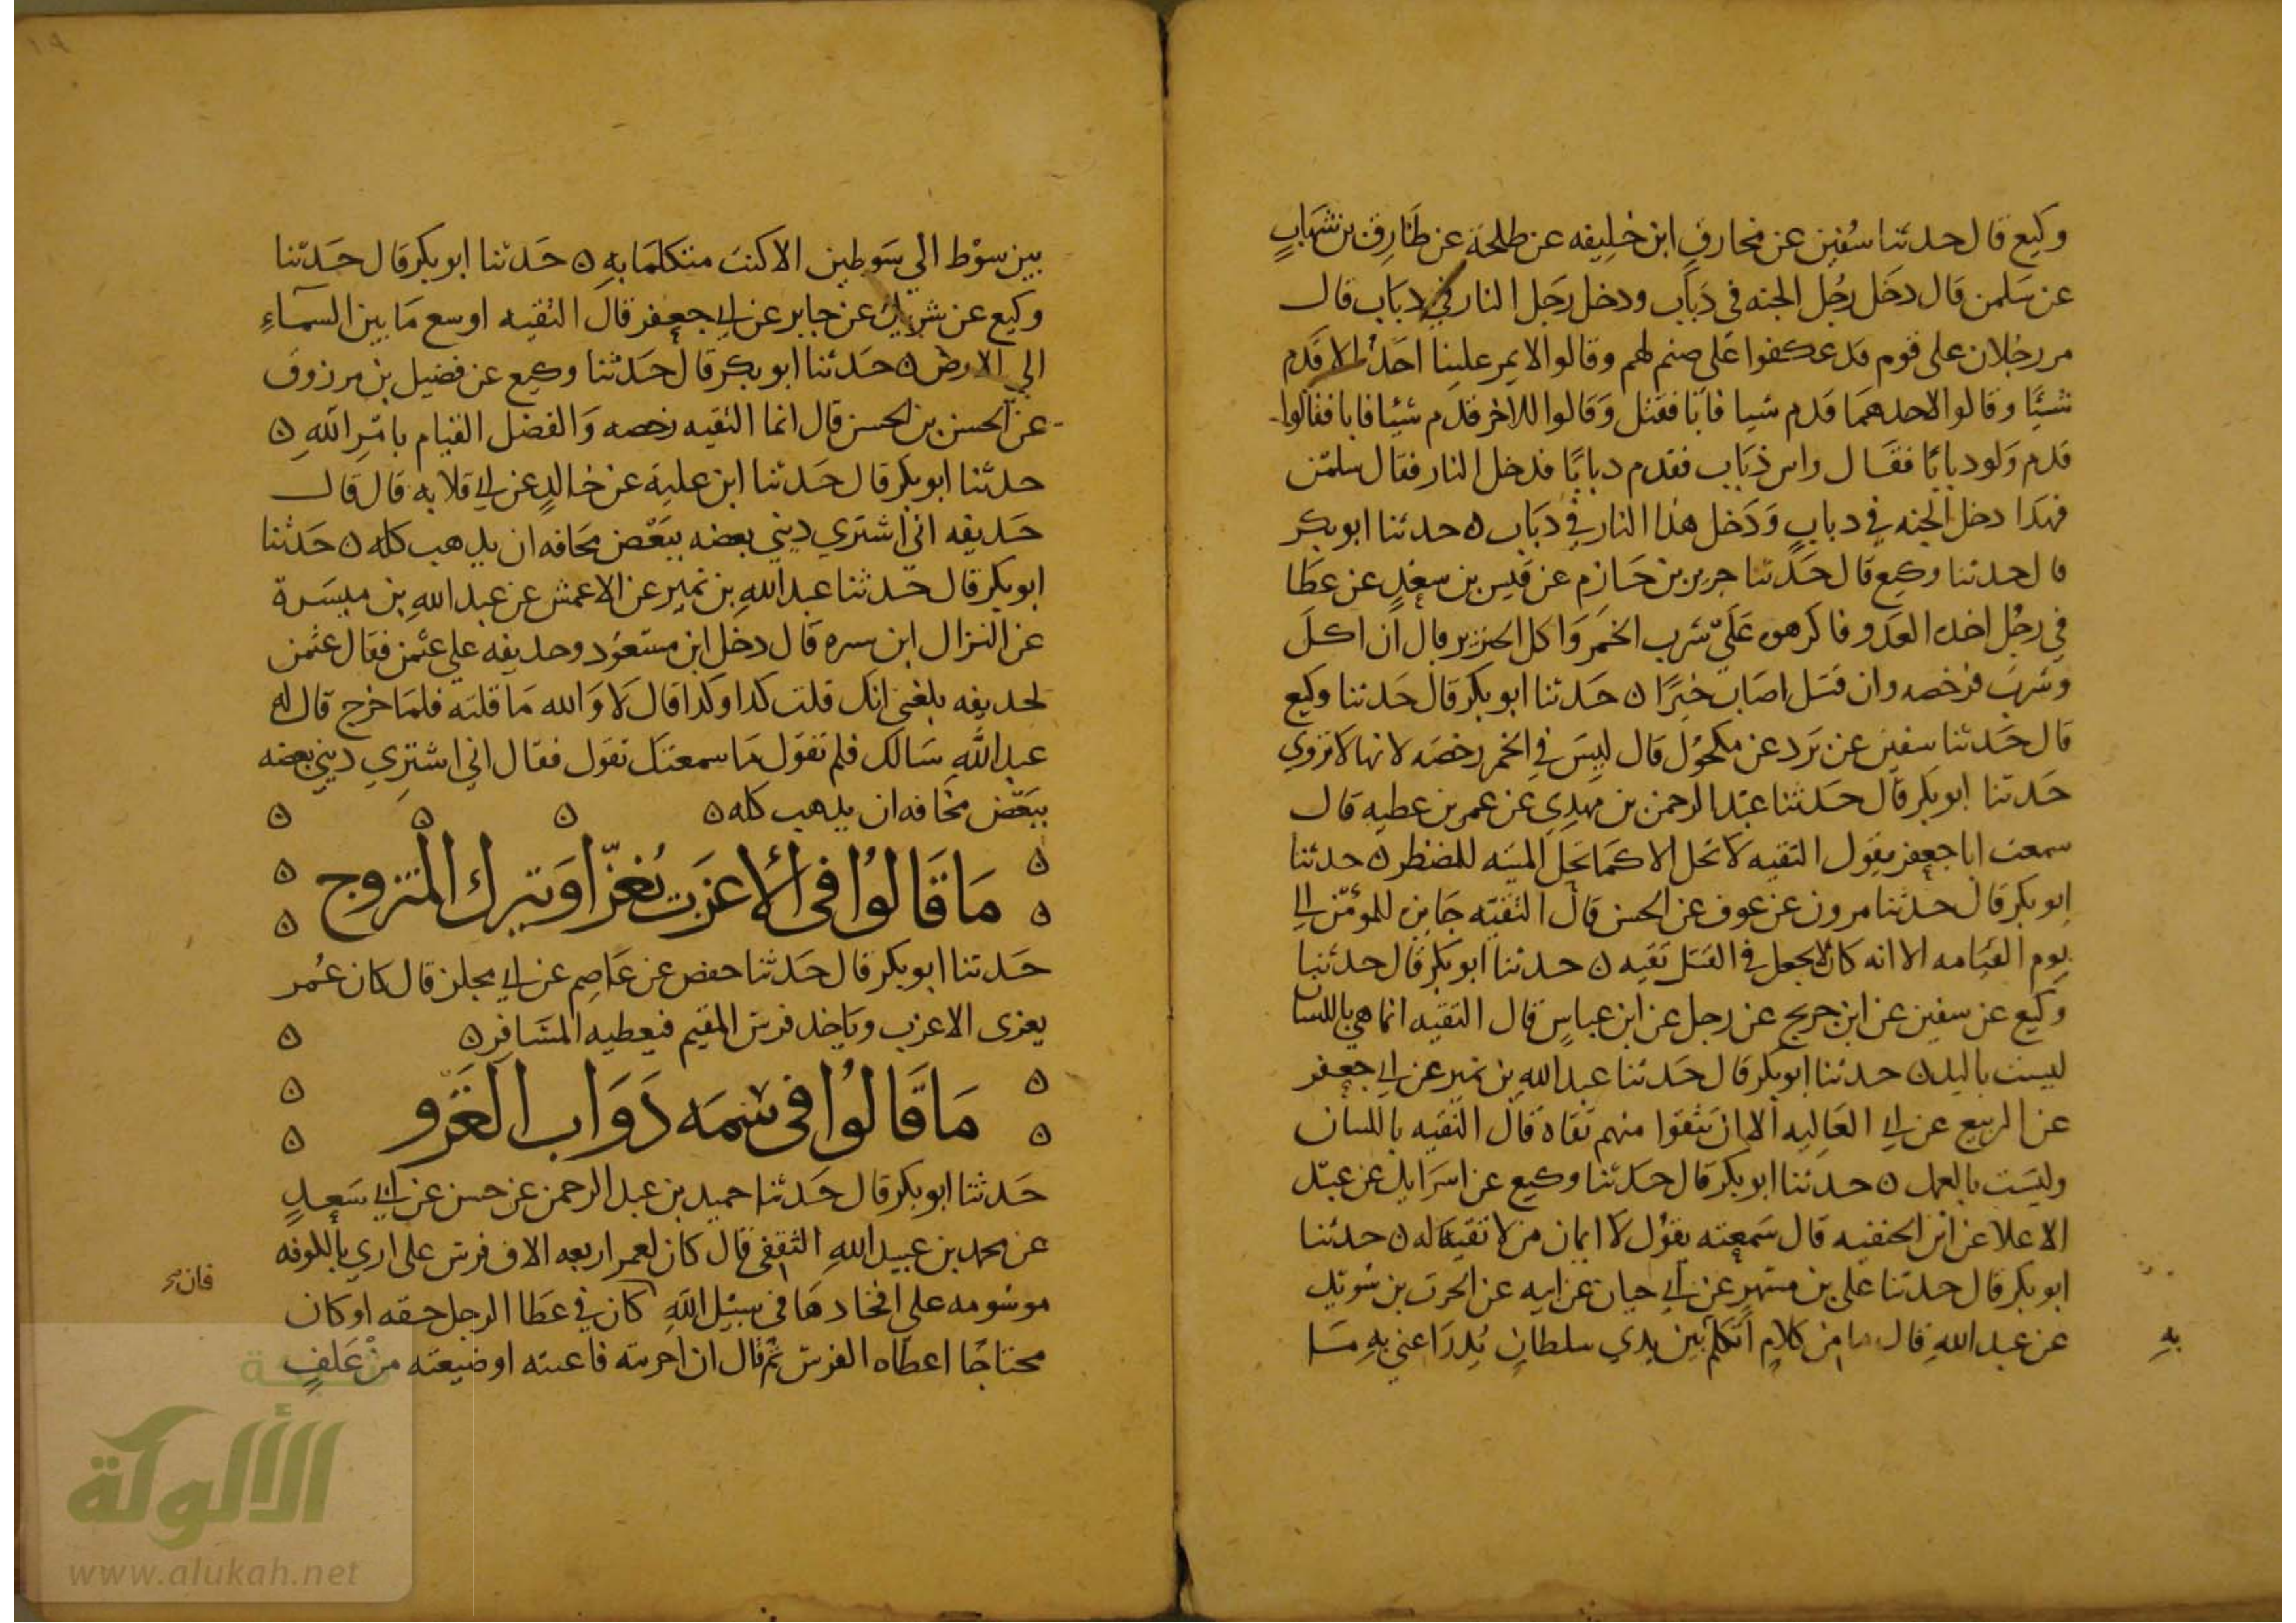 وكيع قال حدثنا سفين عن مخارق ابن خليفه عن طلحة عن طارق بن شهاب
عن سلمن قال دخل رجل الجنه في دباب ودخل رجل النار في دباب قال
مر رجلان على قوم قد عكفوا على صنم لهم وقالوا لا يمر علينا احد الا قدم
شيئا وقالوا لاحدهما قدم شيا فابا فقتل وقالوا للاخر قدم شيئا فابا فقالوا
قدم ولو دبابا فقال وايس ذباب فقدم دبابا فدخل النار فقال سلمن
فهدا دخل الجنه في دباب ودخل هذا النار في دباب ٥ حدثنا ابو بكر
قال حدثنا وكيع قال حدثنا جرير بن حازم عن قيس بن سعد عن عطا
في رجل اخده العدو فاكرهوه على شرب الخمر واكل الخنزير قال ان اكل
وشرب فرخصه وان قتل اصاب خيرا ٥ حدثنا ابو بكر قال حدثنا وكيع
قال حدثنا سفين عن برد عن مكحول قال ليس في الخمر رخصه لانها لا تروي
حدثنا ابو بكر قال حدثنا عبد الرحمن بن مهدي عن عمر بن عطيه قال
سمعت ابا جعفر يقول التقيه لا تحل الا كما تحل الميته للمضطر ٥ حدثنا
ابو بكر قال حدثنا مرون عن عوف عن الحسن قال التقيه جايزه للمومن الي
يوم القيامه الا انه كان لا يجعل في القتل تقيه ٥ حدثنا ابو بكر قال حدثنا
وكيع عن سفين عن ابن جريج عن رجل عن ابن عباس قال التقيه انما هي باللسان
ليست باليد ٥ حدثنا ابو بكر قال حدثنا عبد الله بن نمير عن ابي جعفر
عن الربيع عن ابي العاليه الا ان تتقوا منهم تقاه قال التقيه باللسان
وليست بالعمل ٥ حدثنا ابو بكر قال حدثنا وكيع عن اسرايل عن عبد
الاعلا عن ابن الحنفيه قال سمعته يقول لا ايمان لمن لا تقيه له ٥ حدثنا
ابو بكر قال حدثنا علي بن مسهر عن ابي حيان عن ابيه عن الحرث بن سويد
عن عبد الله قال ما من كلام اتكلم بين يدي سلطان يدرا عني به ما
به
بين سوط الي سوطين الا كنت متكلما به ٥ حدثنا ابو بكر قال حدثنا
وكيع عن شريك عن جابر عن ابي جعفر قال التقيه اوسع ما بين السماء
الي الارض ٥ حدثنا ابو بكر قال حدثنا وكيع عن فضيل بن مرزوق
عن الحسن بن الحسن قال انما التقيه رخصه والفضل القيام بامر الله ٥
حدثنا ابو بكر قال حدثنا ابن علية عن خالد عن ابي قلابه قال قال
حديفه اني اشتري ديني بعضه ببعض مخافه ان يدهب كله ٥ حدثنا
ابو بكر قال حدثنا عبد الله بن نمير عن الاعمش عن عبد الله بن ميسرة
عن النزال ابن سبره قال دخل ابن مسعود وحديفه علي عثمن فقال عثمن
لحديفه بلغني انك قلت كدا وكدا قال لا والله ما قلته فلما خرج قال له
عبد الله سالك فلم تقول ما سمعتك تقول فقال اني اشتري ديني بعضه
ببعض مخافه ان يدهب كله ٥
ما قالوا في الاعزب يغزا ويترك المتزوج
حدثنا ابو بكر قال حدثنا حفص عن عاصم عن ابي مجلز قال كان عمر
يغزى الاعزب وياخد فرس المقيم فيعطيه المسافر ٥
ما قالوا في سمه دواب الغزو
حدثنا ابو بكر قال حدثنا حميد بن عبد الرحمن عن حسن عن ابي سعيد
عن محمد بن عبيد الله الثقفي قال كان لعمر اربعه الاف فرس على اري بالكوفه
موسومه علي افخادها في سبيل الله كان في عطا الرجل خفه او كان
فان صح
محتاجا اعطاه الفرس ثم قال ان اجريته فاعييته او ضيعته من علف
الألوكة
www.alukah.net